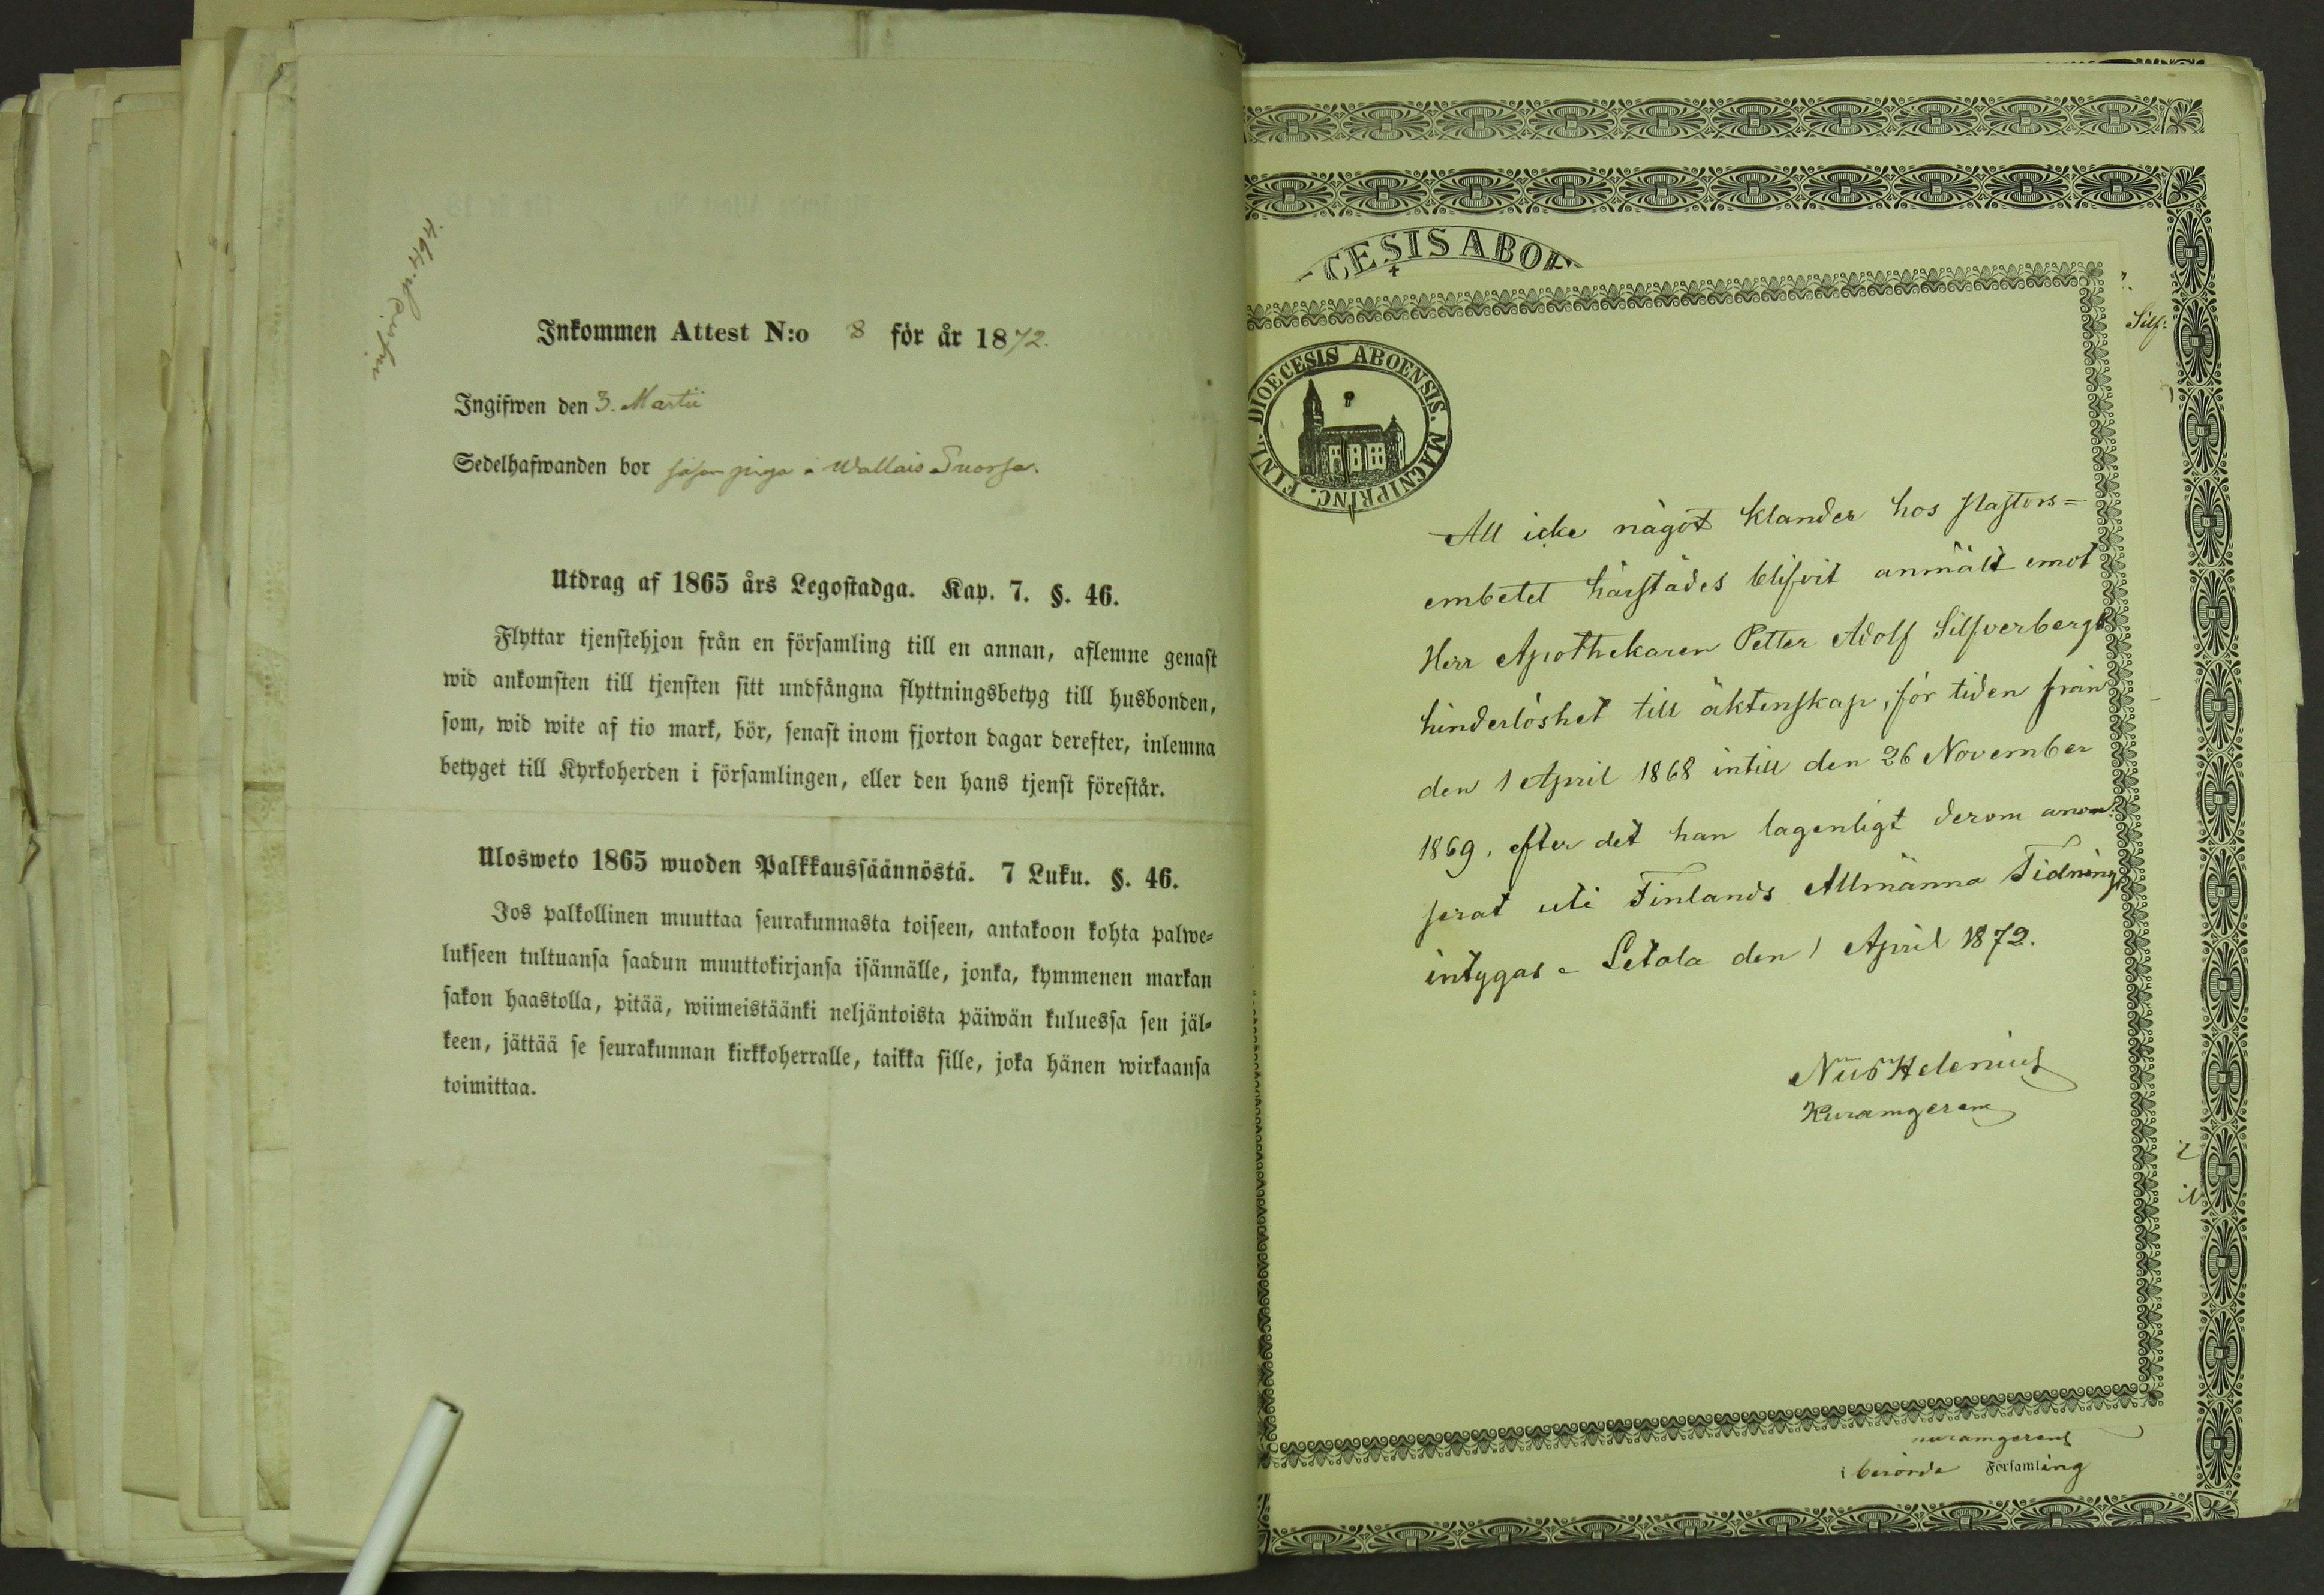 Inkommen Attest N:o 8 för år 1872.
Ingifwen den 3. Martii
Sedelhafwanden bor såsom piga i Wallais Suorsa.
Utdrag af 1865 års Legostadga. Kap. 7. §. 46.
Flyttar tjenstehjon från en församling till en annan, aflemne genast
wid ankomsten till tjensten sitt undfångna flyttningsbetyg till husbonden,
som, wid wite af tio mark, bör, senast inom fjorton dagar derefter, inlemna
betyget till Kyrkoherden i församlingen, eller den hans tjenst förestår.
Ulosweto 1865 wuoden Palkkaussäännöstä. 7 Luku. §. 46.
Jos palkollinen muuttaa seurakunnasta toiseen, antakoon kohta palwe-
lukseen tultuansa saadun muuttokirjansa isännälle, jonka, kymmenen markan
sakon haastolla, pitää, wiimeistäänki neljäntoista päiwän kuluessa sen jäl-
keen, jättää se seurakunnan kirkkoherralle, taikka sille, joka hänen wirkaansa
toimittaa.
CESIS ABOE
Silf:
DIOECESIS ABOENSIS. MAGNIPRINC. FINL.
Att icke något klander hos pastors=
embetet härstädes blifvit anmäldt emot
Herr Apothekaren Petter Adolf Silfverbergs
hinderlöshet till äktenskap, för tiden från
den 1 April 1868 intill den 26 November
1869, efter det han lagenligt derom anon-
serat uti Finlands Allmänna Tidning,
intygas. Letala den 1 April 1872.
Nils Helenius
Kuramgerens
kuramgerens
i berörde Församling